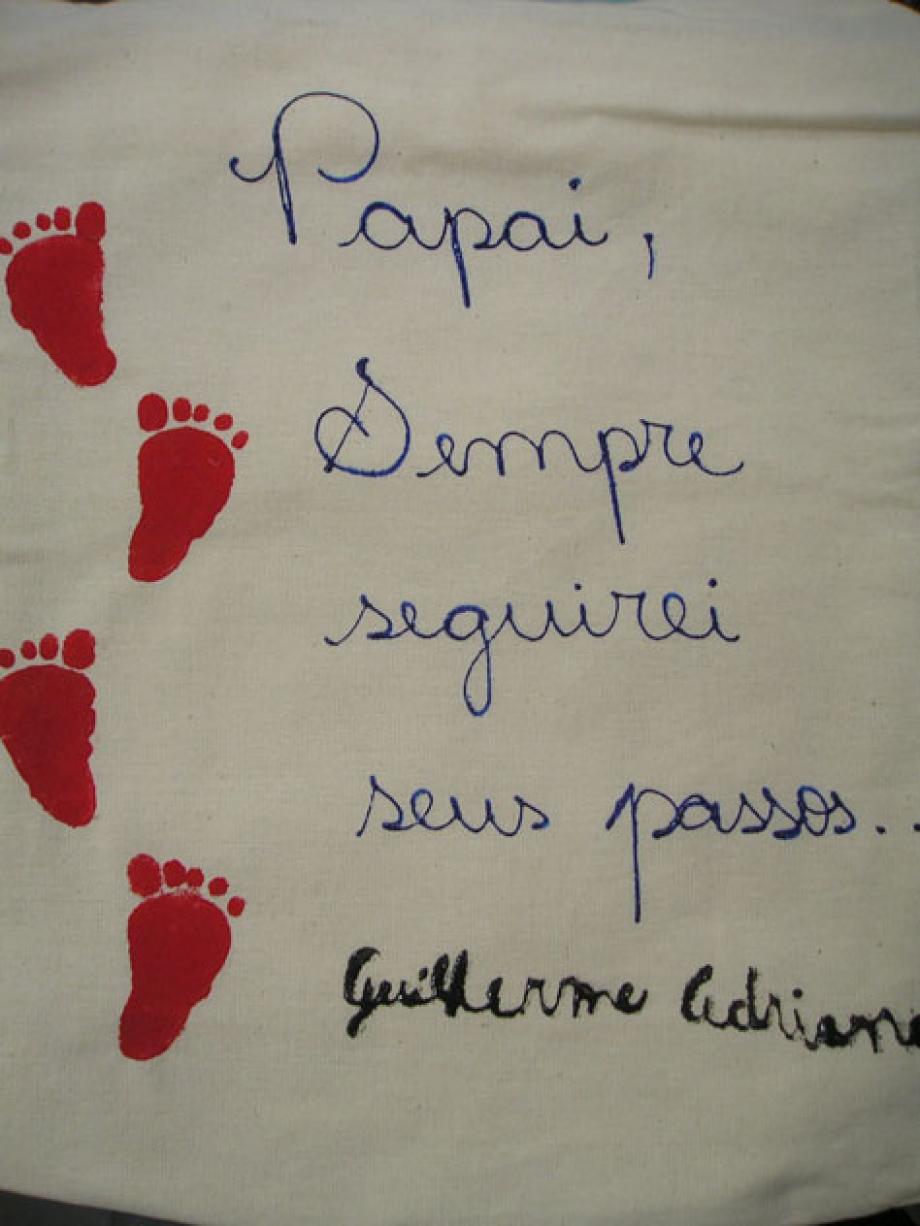 Papai,
Sempre
seguirei
seus passos..
Guilherme Adriano